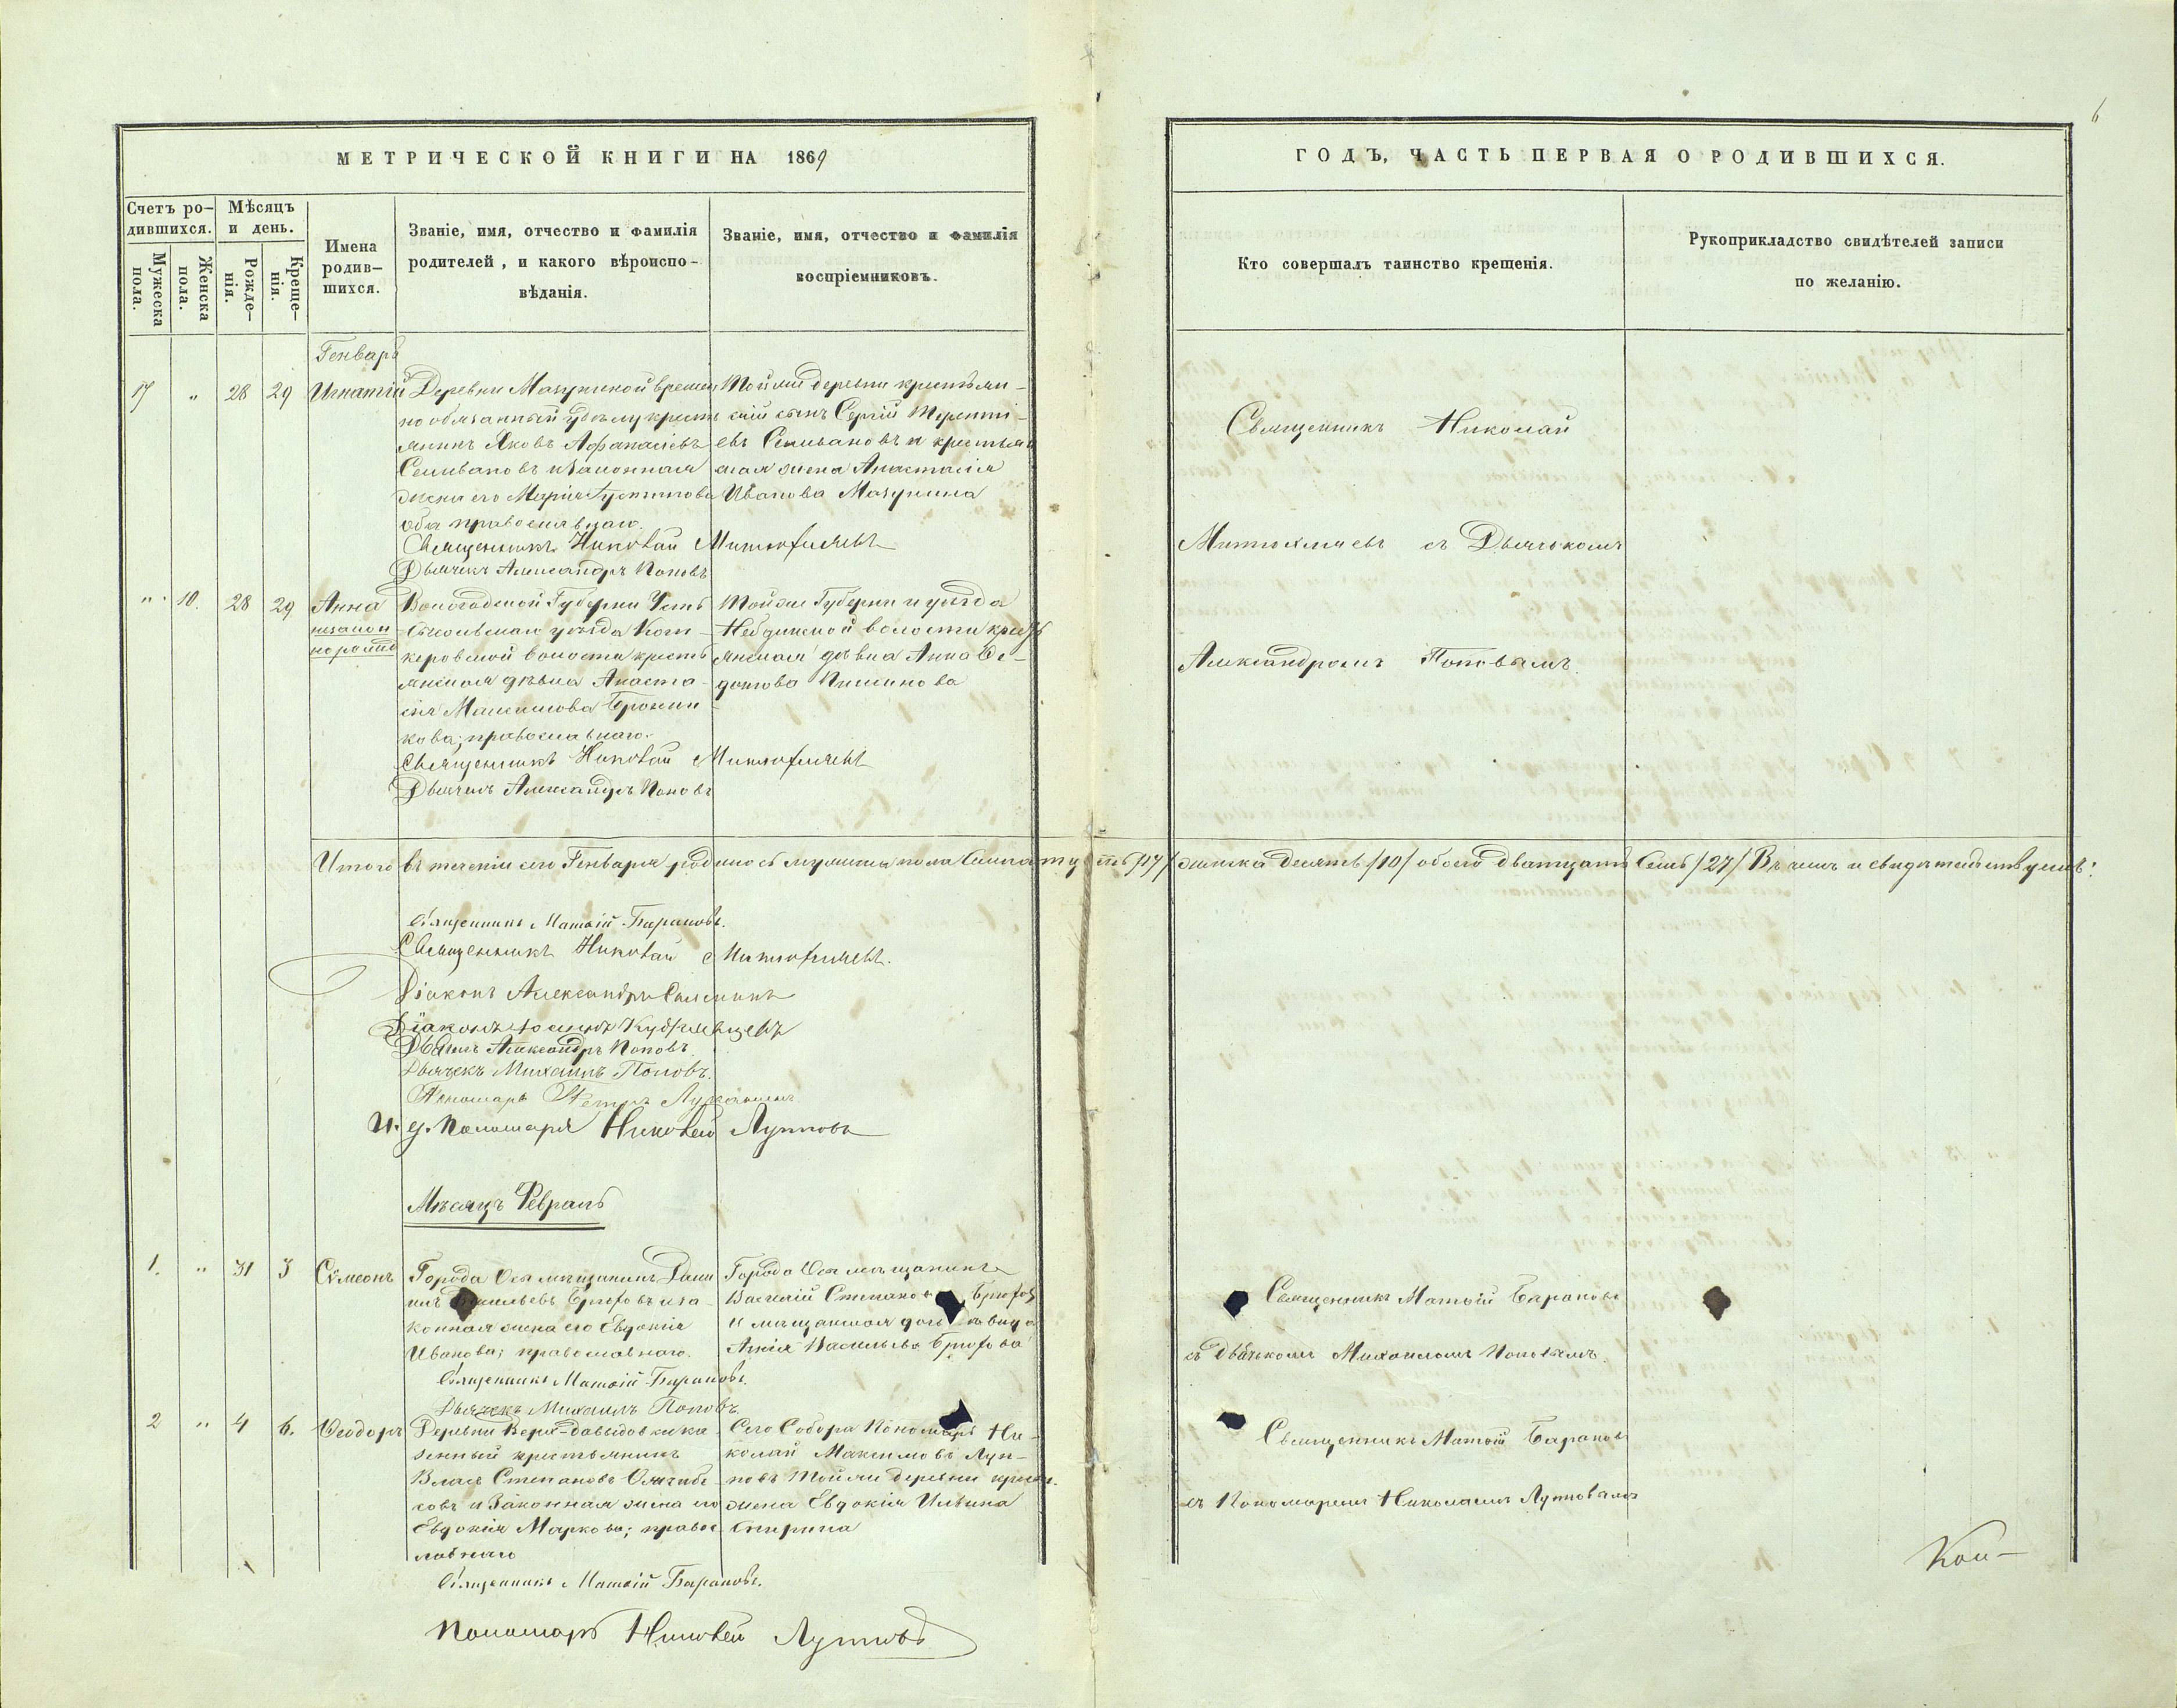 6
МЕТРИЧЕСКОЙ КНИГИ НА 1869
ГОДЪ, ЧАСТЬ ПЕРВАЯ О РОДИВШИХСЯ.
Счетъ ро-
дившихся.
Мужеска
пола.
Женска
пола.
Мѣсяцъ
и день.
Рожде-
нія.
Креще-
нія.
Имена
родив-
шихся.
Званіе, имя, отчество и фамилія
родителей, и какого вѣроиспо-
вѣданія.
Званіе, имя, отчество и фамилія
воспріемниковъ.
Кто совершалъ таинство крещенія.
Рукоприкладство свидѣтелей записи
по желанію.
Генварь
17 " 28 29 Игнатій
Деревни Мазуниной времен
но обязанный удѣлу кресть
янинъ Яковъ Афанасіевъ
Селивановъ и законная
жена его Марія
оба православнаго.
Священникъ Николай Митюхляевъ
Дьячекъ Александръ Поповъ
Той же деревни крестьян-
скій сынъ Сергій Теренті-
евъ Селивановъ и крестьян
ская жена Анастасія
Иванова Мазунина
Священникъ Николай
Митюхляевъ съ Дьячкомъ
Александромъ Поповымъ
" 10. 28 29 Анна
незакон
норожд
Вологодской Губерніи Усть
Сысольскаго уѣзда Кот-
керовской волости кресть
янская дѣвка Анаста-
сія Максимова
кова; православнаго.
Священникъ Николай Митюхляевъ
Дьячекъ Александръ Поповъ
Той же Губерніи и уѣзда
Небдинской волости кресть
янская дѣвка Анна Ѳе-
дотова
Итого въ теченіи сего Генваря родилось мужеска пола Семнатцать /17/ женска десять /10/ обоего дватцать Семь /27/ Въ чемъ и свидѣтельствуемъ:
Священникъ Матѳій Барановъ.
Священникъ Николай Митюхляевъ.
Діаконъ Александръ
Діаконъ Іосифъ Кудрявцевъ
Дьячекъ Александръ Поповъ.
Дьячекъ Михаилъ Поповъ.
Пономарь Петръ
И. д. Пономаря Николай Луповъ
Мѣсяцъ Февраль
1. " 31 3 Сѵмеонъ
Города Осы мѣщанинъ Дани
илъ Васильевъ Брюховъ и за-
конная жена его Евдокія
Иванова; православнаго.
Священникъ Матѳій Барановъ.
Дьячекъ Михаилъ Поповъ.
Города Осы мѣщанинъ
Василій Степановъ Брюховъ
и мѣщанская
Васильева Брюхова
Священникъ Матѳій Барановъ
съ Дьячкомъ Михаиломъ Поповымъ.
2 " 4 6. Ѳеодоръ
Деревни Верх-Давыдовки ка-
зенный крестьянинъ
Власъ Степановъ
совъ и законная жена его
Евдокія Маркова; правос-
лавнаго
Священникъ Матѳій Барановъ.
Пономарь Николай Луповъ
Сего Собора Пономарь Ни-
колай Максимовъ Луп-
повъ Той же деревни крест.
жена Евдокія Ильина
Спирина
Священникъ Матѳій Барановъ
съ Пономаремъ Николаемъ Лупповымъ